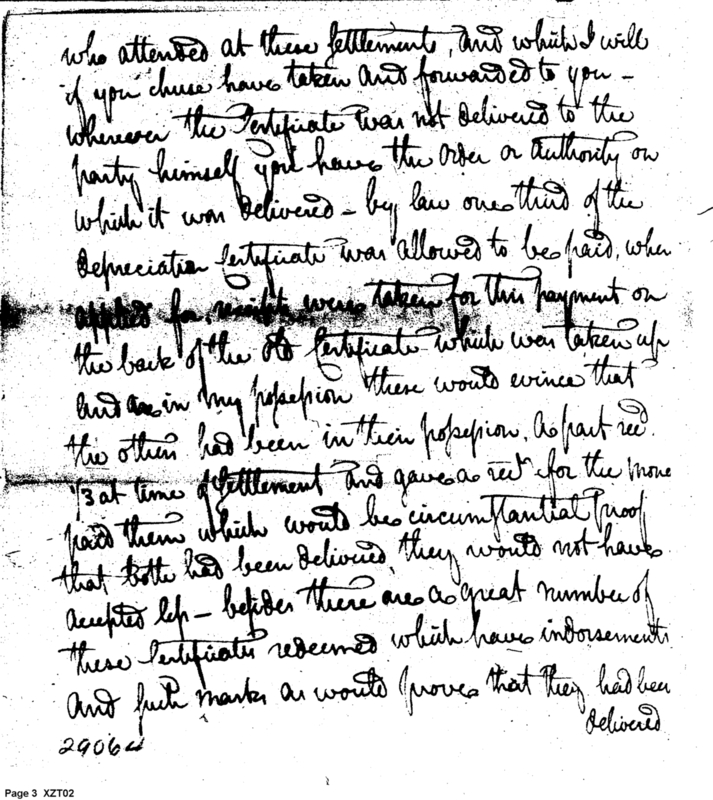 who attended at these Settlements, and which I will
if you chuse have taken and forwarded to you –
wherever the Certificate was not delivered to the
party himself you have the order or authority on
which it was delivered – by law one third of the
depreciation Certificate was allowed to be paid, when
applied for, receipts were taken for this payment on
the back of the old Certificate which was taken up
and are in my possession these would evince that
the others had been in their possession. As part recd.
1/3 at time of Settlement and gave a rect for the mone
paid them which would be circumstantial proof
that both had been delivered, they would not have
accepted less – besides there are a great number of
these Certificates redeemed which have indorsements
and such marks as would prove that they had been
delivered
29064
Page 3 XZT02